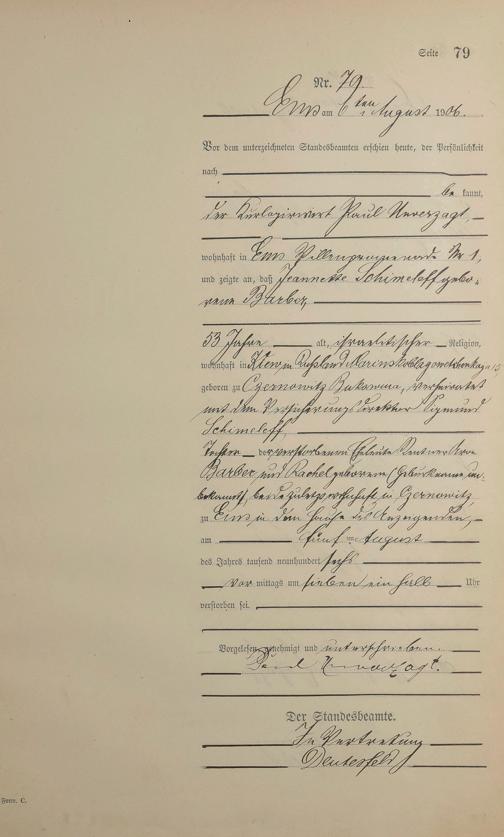 Seite 79
Nr. 79.
Ems am 6ten August 1906.
Vor dem unterzeichneten Standesbeamten erschien heute, der Persönlichkeit
nach
be kannt,
der Kurlogirwirt Paul Unverzagt,
wohnhaft in Ems Villenpromenade Nr 1,
und zeigte an, daß Jeannette Schimeloff gebo-
rene Barber,
53 Jahre alt, israelitischer Religion,
wohnhaft in Kiew in Rußland
geboren zu Czernowitz Bukowina, verheiratet
mit dem Versicherungsdirektor Sigmund
Schimeloff,
Tochter der verstorbenen Eheleute Rentner
Barber und Rachel geborene (Geburtsname un-
bekannt), beide zuletzt wohnhaft in Czernowitz
zu Ems, in dem Hause des Anzeigenden,
am fünf ten August
des Jahres tausend neunhundert sechs
vor mittags um sieben ein halb Uhr
verstorben sei.
Vorgelesen, genehmigt und unterschrieben.
Paul Unverzagt.
Der Standesbeamte.
In Vertretung
Form. C.